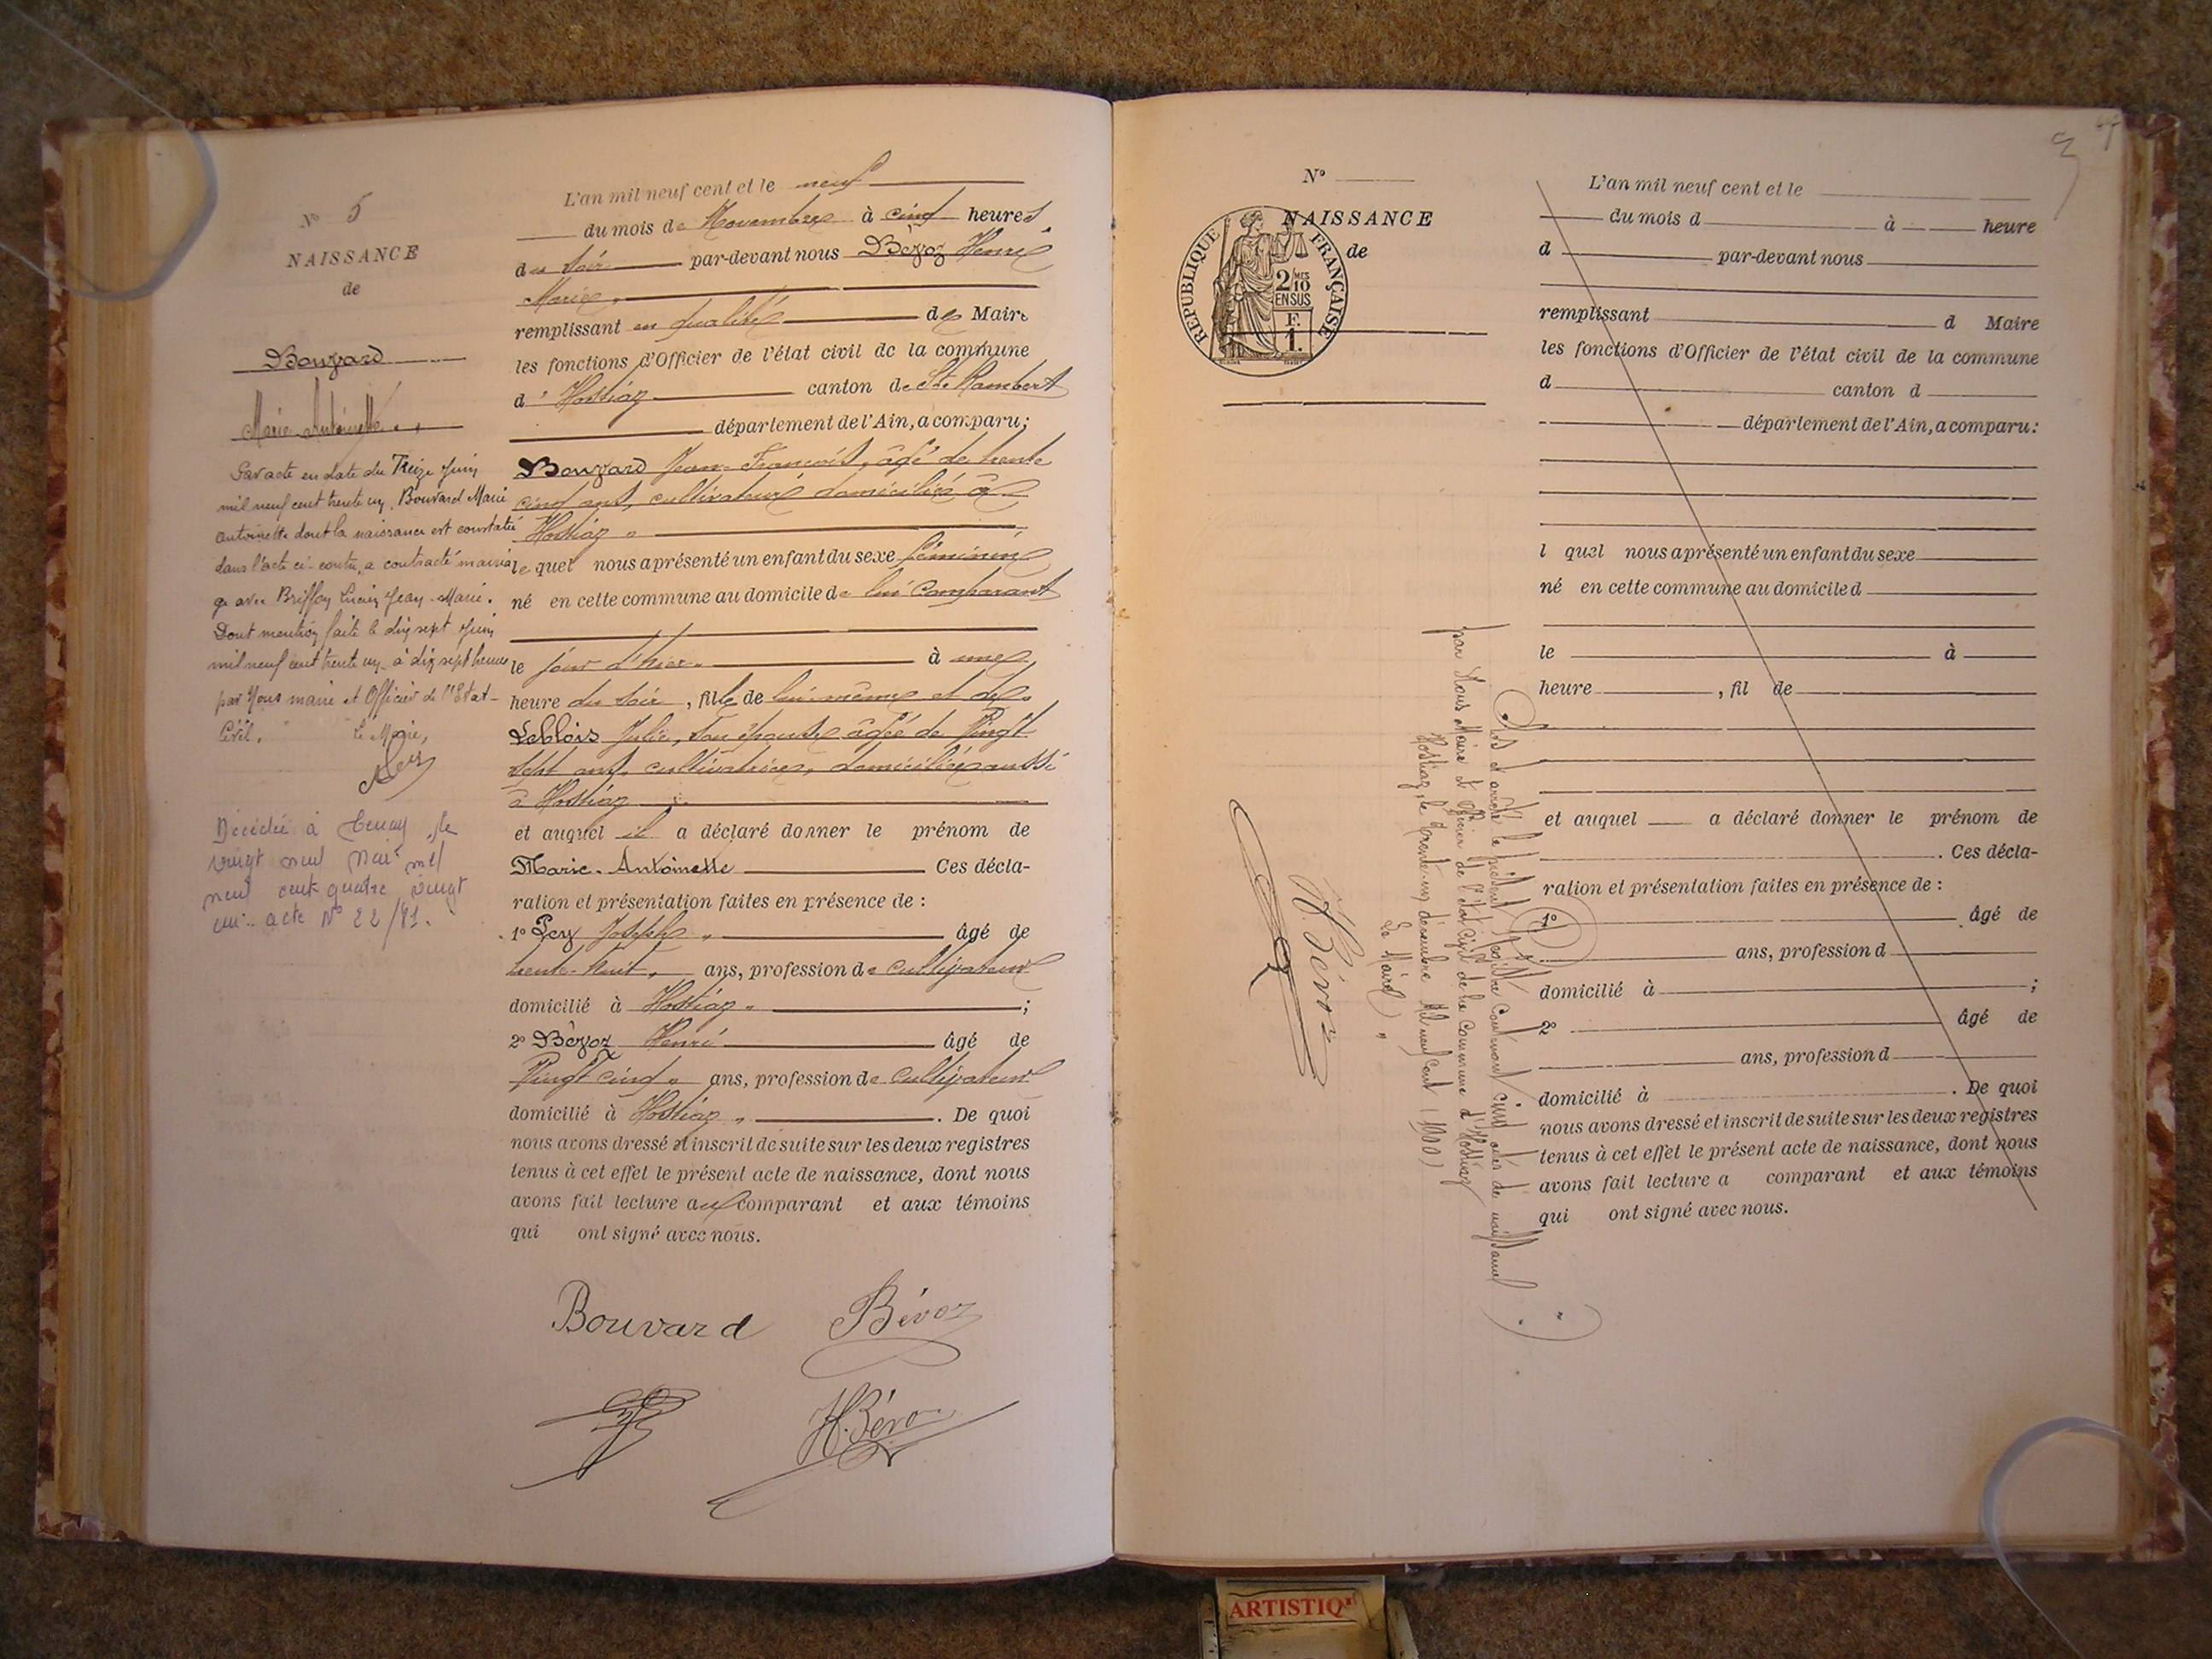 N° 5
NAISSANCE
de
Bouvard
Marie Antoinette
Par acte en date du Treize Juin
mil neuf cent trente un, Bouvard Marie
Antoinette dont la naissance est constatée
dans l'acte ci-contre, a contracté maria
ge avec Lucien Jean-Marie.
Dont mention faite le dix sept Juin
mil neuf cent trente un à dix sept heures
par Nous maire et Officier de l'Etat-
Civil. Le Maire,
Décédée à Tenay, le
vingt neuf Mai mil
neuf cent quatre vingt
un. acte N° 22/81.
L'an mil neuf cent et le neuf
du mois de Novembre à cinq heures
du soir par-devant nous Bévoz Henri
Marie
remplissant en qualité de Maire
les fonctions d'Officier de l'état civil de la commune
d'Hostiaz canton de St. Rambert
département de l'Ain, a comparu:
Bouvard Jean-François, âgé de trente
cinq ans, cultivateur domicilié à
Hostiaz
lequel nous a présenté un enfant du sexe féminin
né en cette commune au domicile de lui comparant
le jour d'hier à une
heure du soir, fille de lui même et de
Leblois Julie, son épouse âgée de Vingt
sept ans, cultivatrice, domiciliée aussi
à Hostiaz
et auquel il a déclaré donner le prénom de
Marie-Antoinette Ces décla-
ration et présentation faites en présence de :
1° Pey Joseph âgé de
trente-huit, ans, profession de cultivateur
domicilié à Hostiaz ;
2° Bévoz Henri âgé de
Vingt cinq ans, profession de Cultivateur
domicilié à Hostiaz . De quoi
nous avons dressé et inscrit de suite sur les deux registres
tenus à cet effet le présent acte de naissance, dont nous
avons fait lecture au comparant et aux témoins
qui ont signé avec nous.
Bouvard Bévoz
H. Bévoz
N°
NAISSANCE
de
REPUBLIQUE FRANÇAISE
2/10 MES
EN SUS
F.
1.
L'an mil neuf cent et le
du mois d à heure
d par-devant nous
remplissant d Maire
les fonctions d'Officier de l'état civil de la commune
d canton d
département de l'Ain, a comparu:
l quel nous a présenté un enfant du sexe
né en cette commune au domicile d
le à
heure , fil de
et auquel a déclaré donner le prénom de
. Ces décla-
ration et présentation faites en présence de :
1° âgé de
ans, profession d
domicilié à ;
2° âgé de
ans, profession d
domicilié à . De quoi
nous avons dressé et inscrit de suite sur les deux registres
tenus à cet effet le présent acte de naissance, dont nous
avons fait lecture a comparant et aux témoins
qui ont signé avec nous.
Clos et arrêté le présent Registre Contenant cinq actes de naissance
par Nous Maire et Officier de l'état civil de la Commune d'Hostiaz
Hostiaz, le trente-un décembre Mil neuf Cent (1900)
Le Maire
H Bévoz
ARTISTIQ